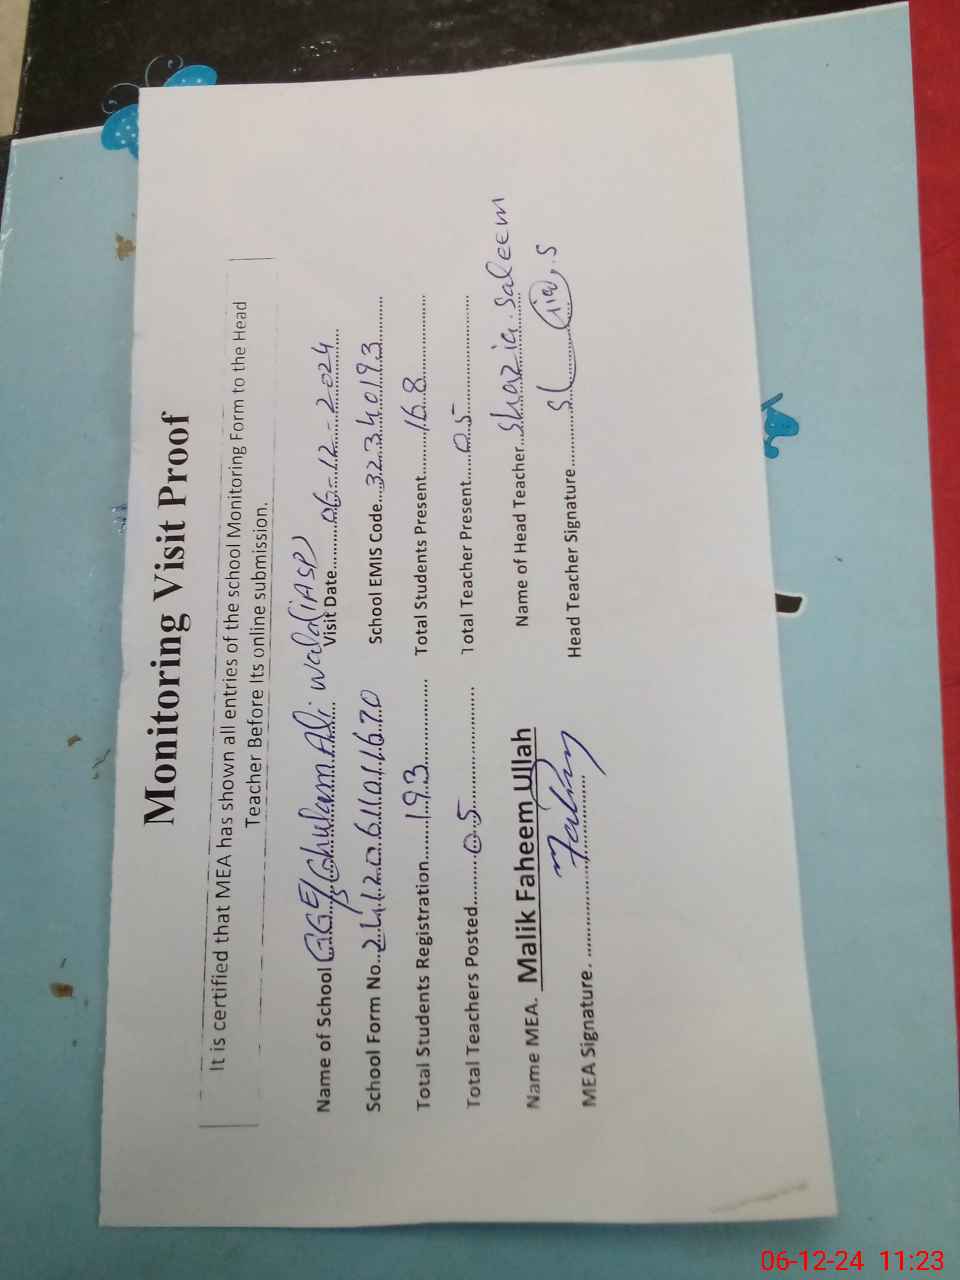 Monitoring Visit Proof
It is certified that MEA has shown all entries of the school Monitoring Form to the Head
Teacher Before Its online submission.
Name of School GGES Ghulam Ali wala (iASP) Visit Date 06-12-2024
School Form No. 24120611011670 School EMIS Code 32340193
Total Students Registration 193 Total Students Present 168
Total Teachers Posted 05 Total Teacher Present 05
Name MEA. Malik Faheem Ullah Name of Head Teacher Shazia Saleem
MEA Signature. Head Teacher Signature
06-12-24 11:23